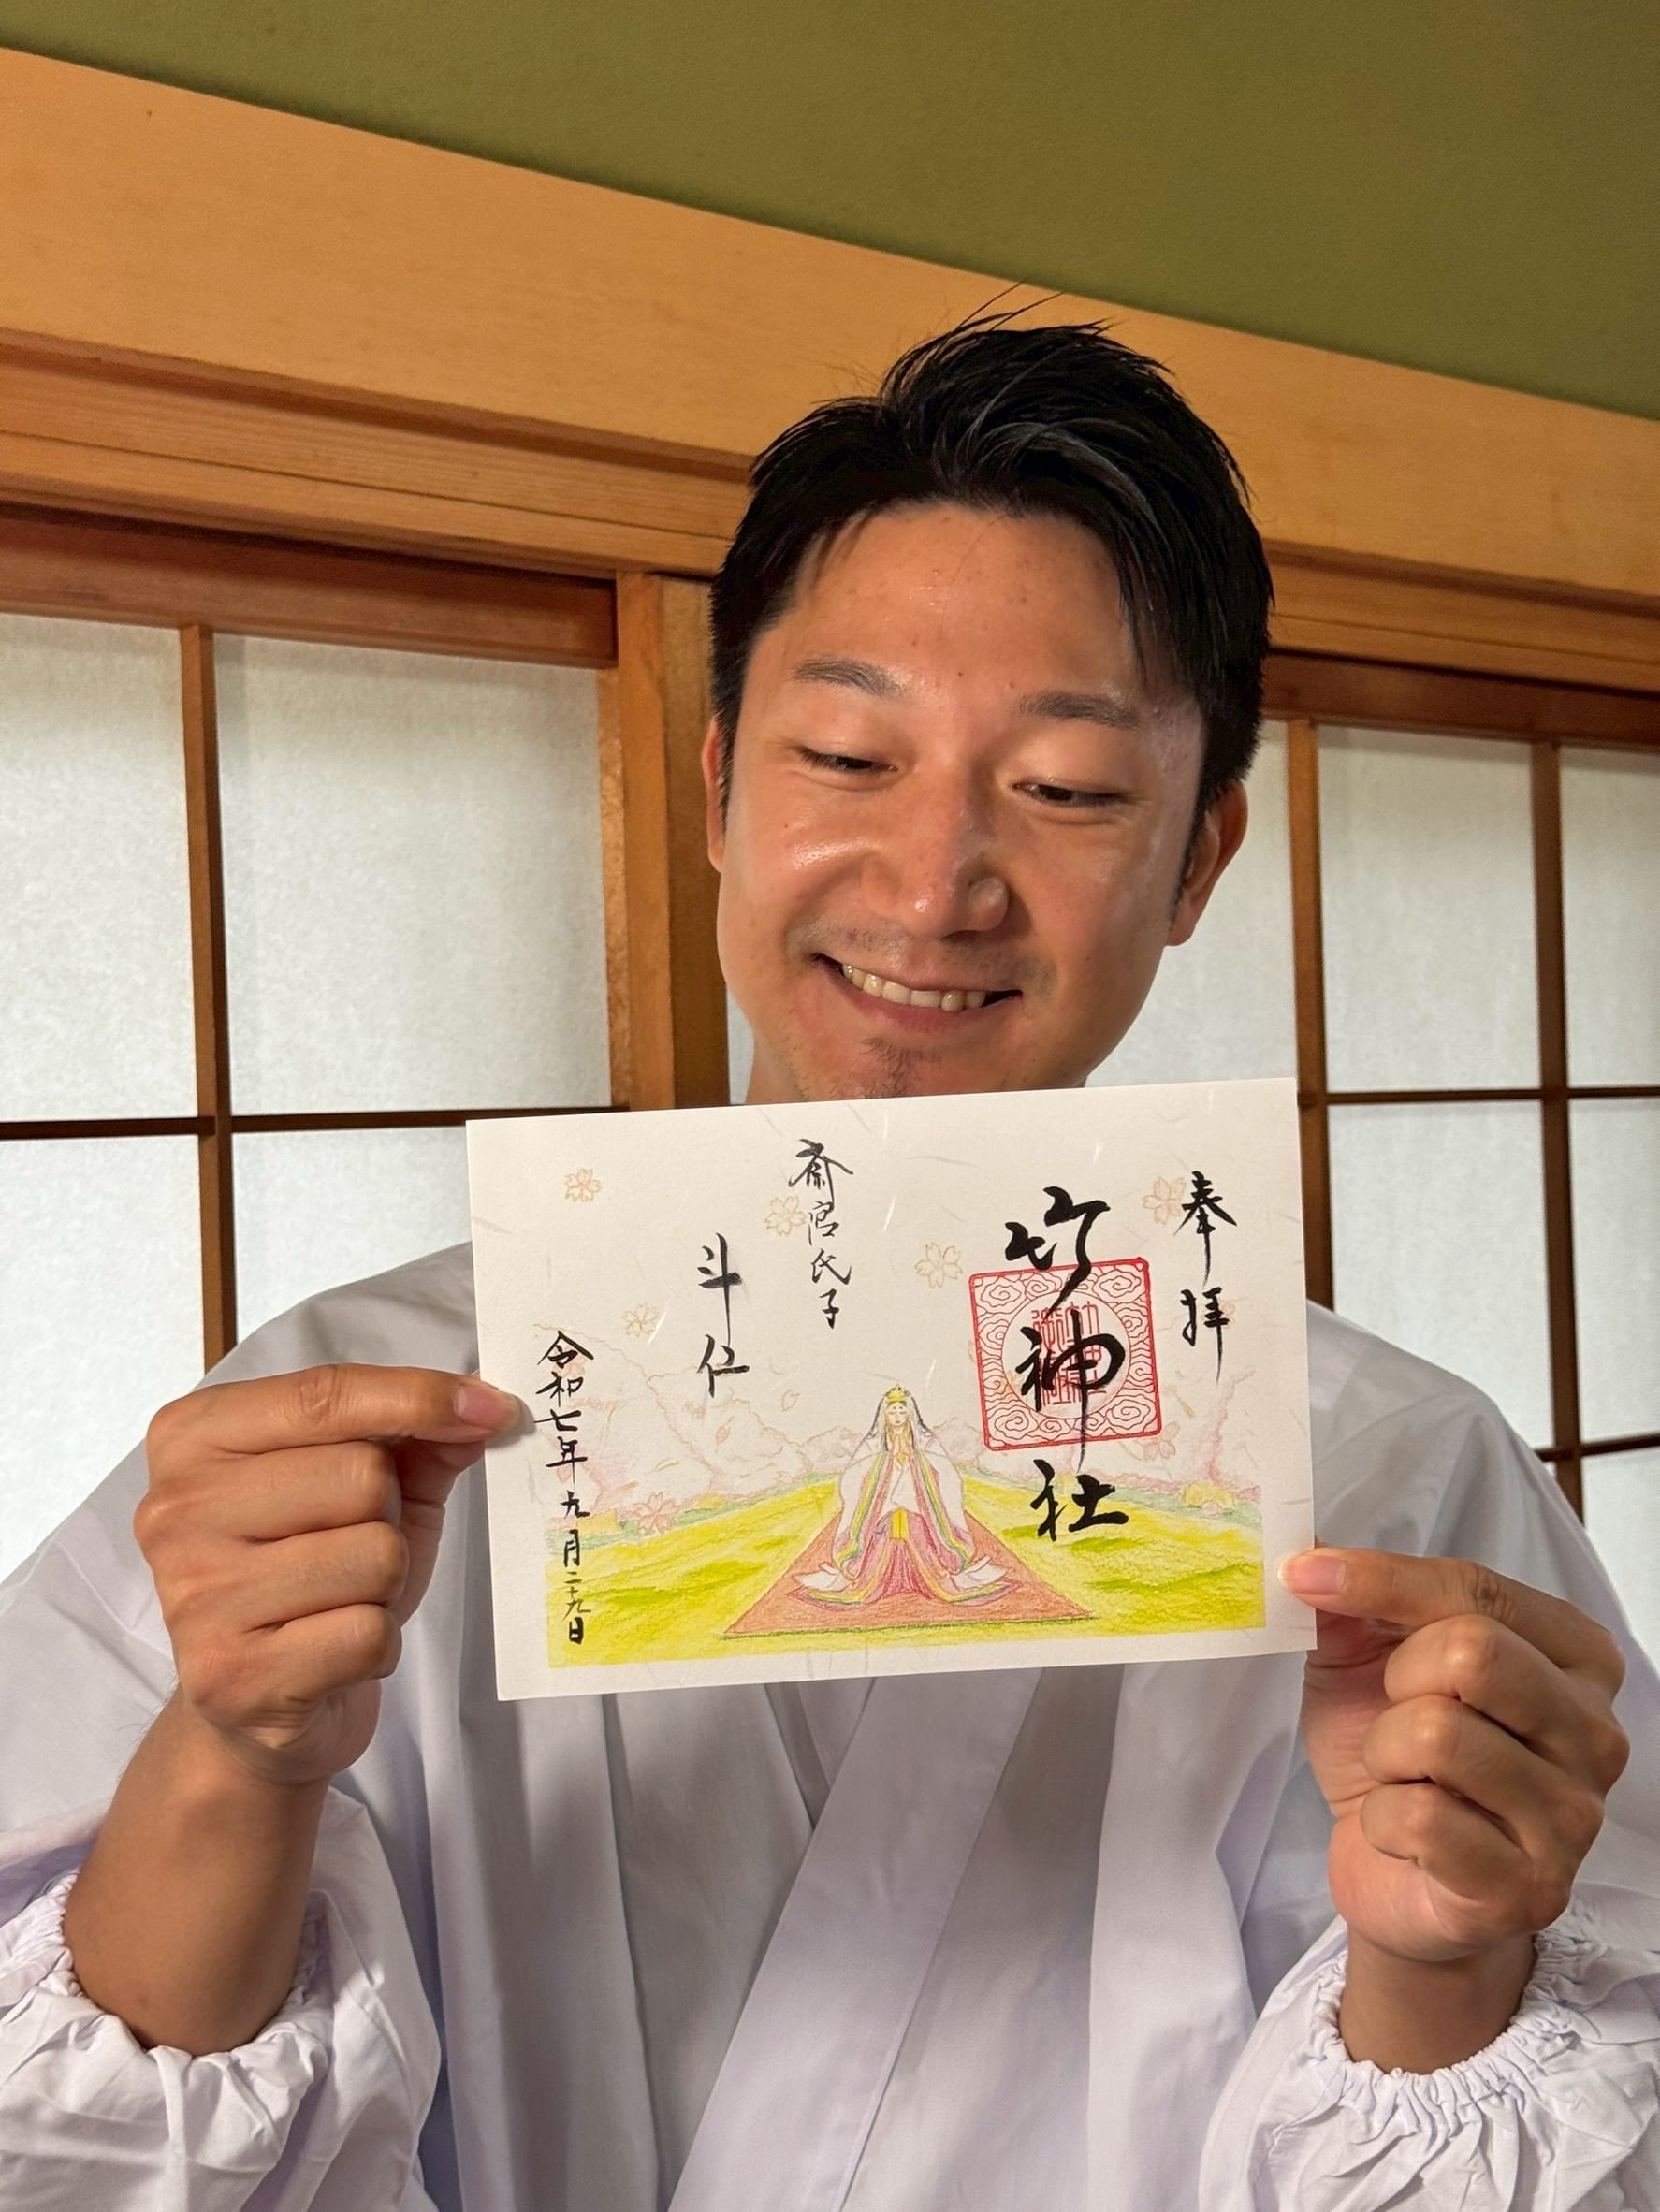 奉拝
竹神社
斎宮氏子
斗仁
令和七年九月二十九日